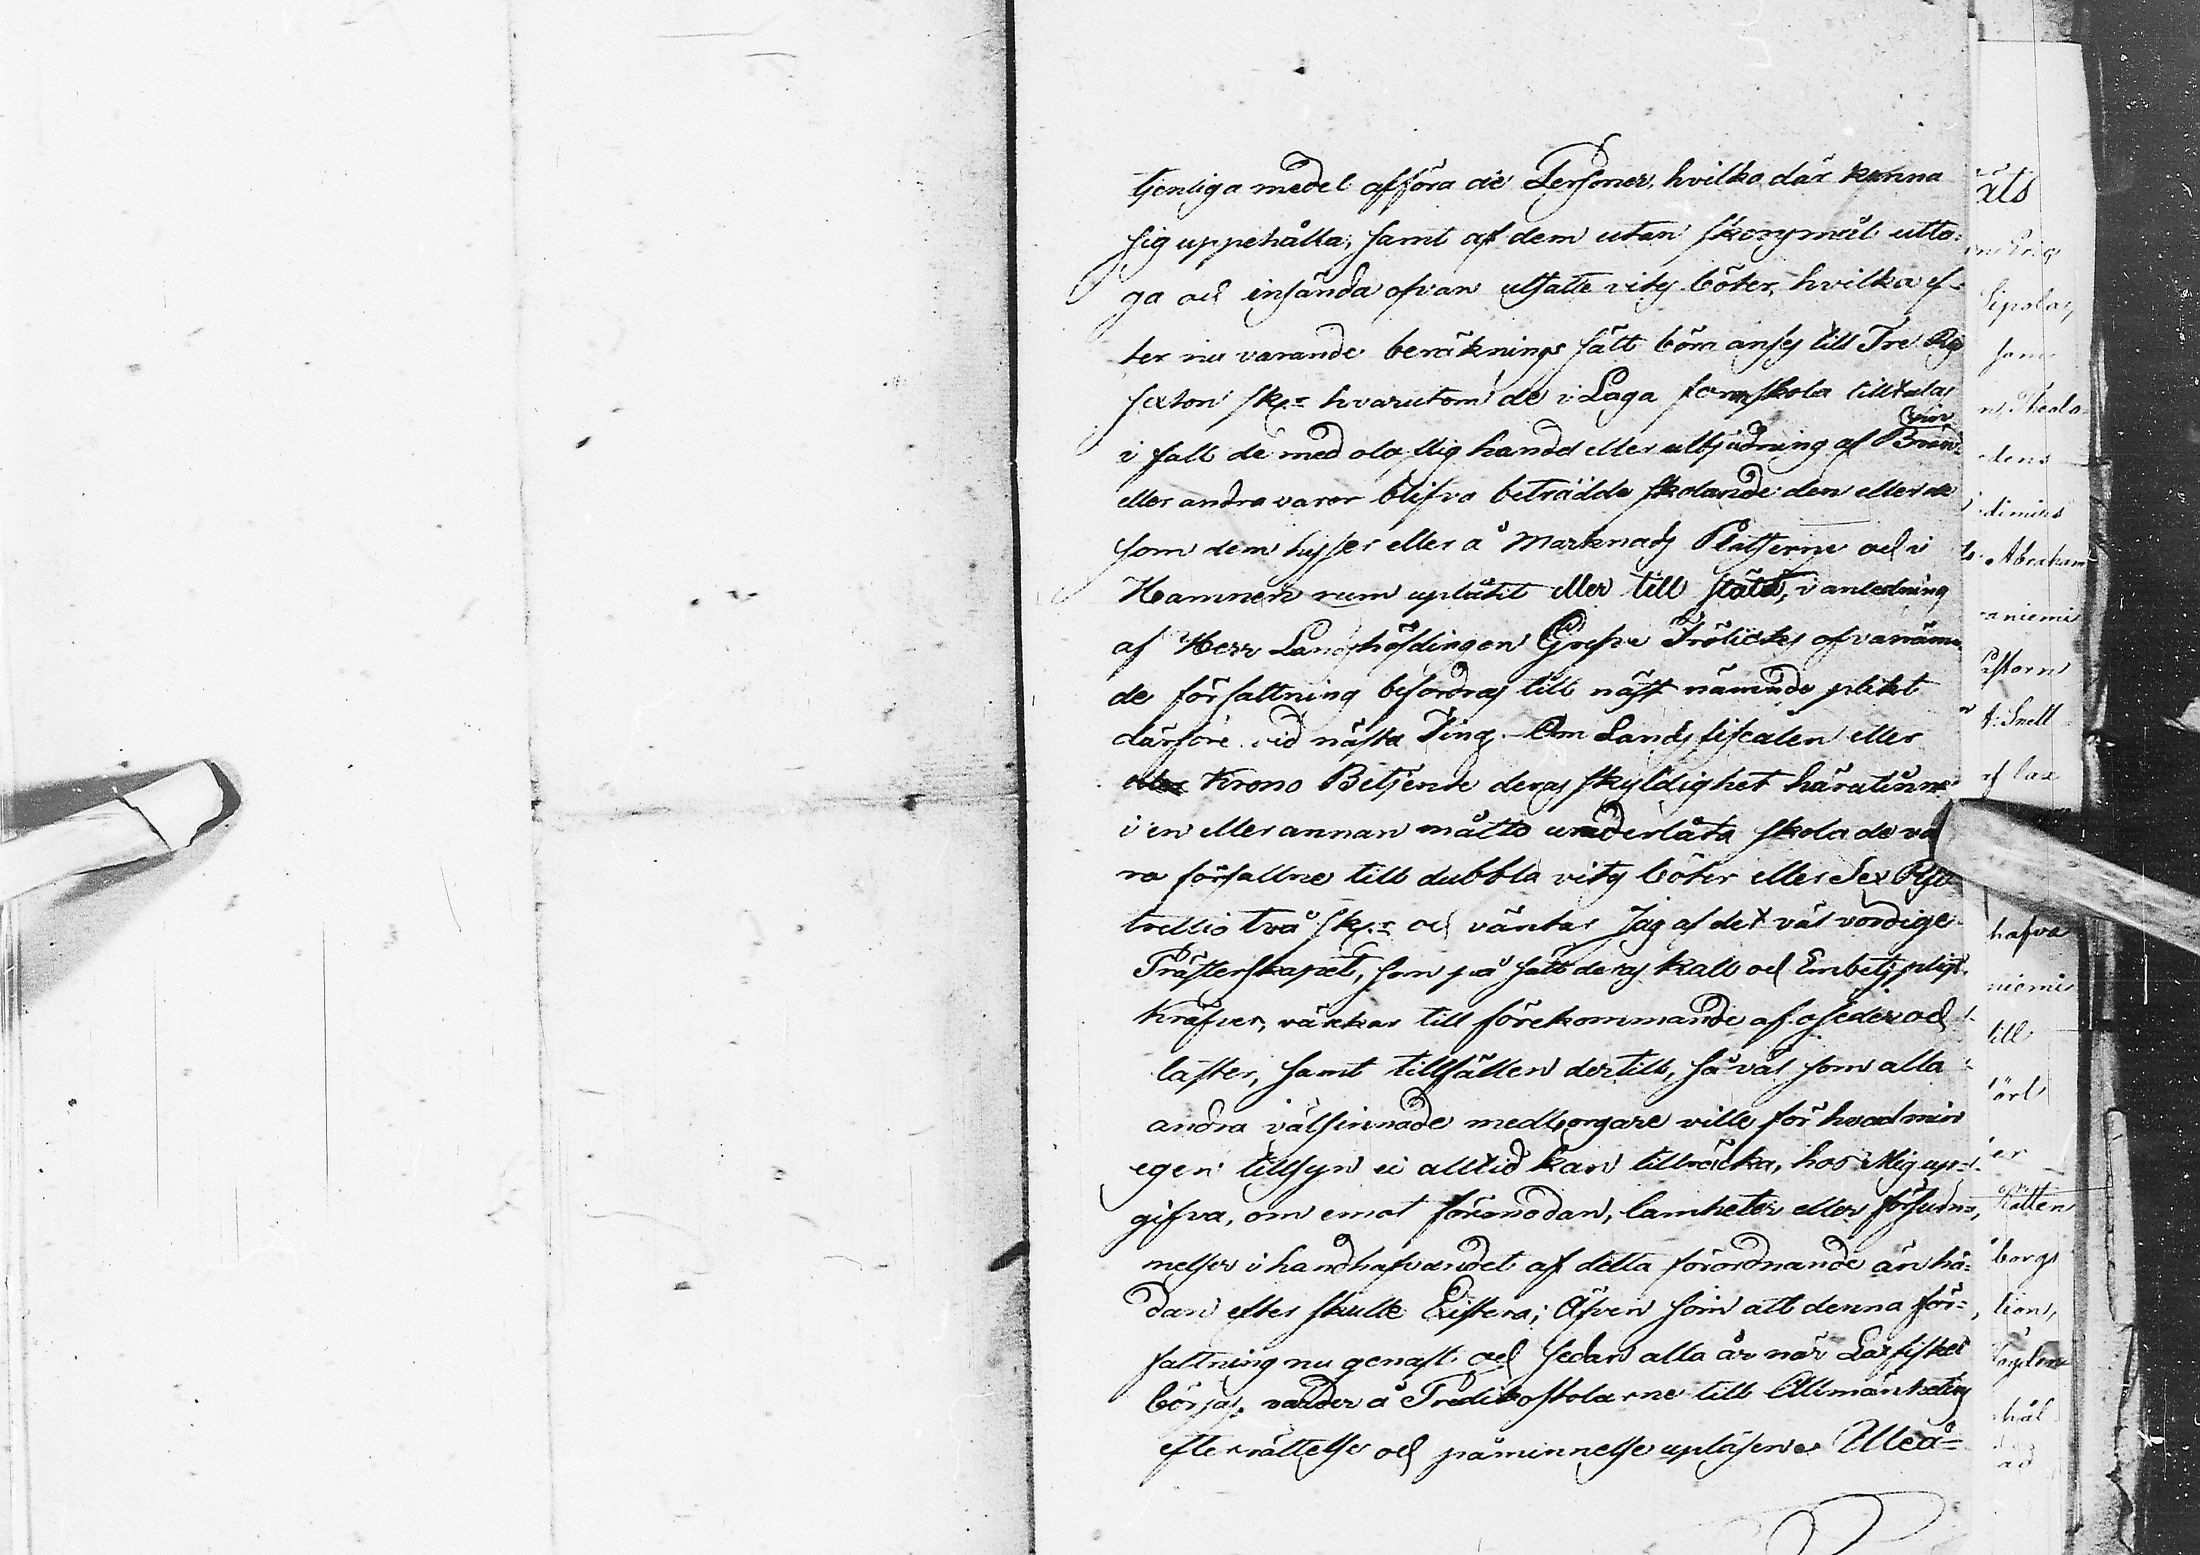 tjenliga medel afföra de Personer, hvilka där kunna
sig uppehålla, samt af dem utan skonsmål utta-
ga och insända ofvan utsatte vites böter, hvilka ef-
ter nu varande beräknings sätt böra anses till Tre Rd
sexton sk:r hvarutom de i Laga form skola tilltalas
i fall de med olaglig handel eller utbjudning af Bränvin
eller andra varor blifva beträdde skolande den eller de
som dem hyser eller å Marknads Platserne och i
Hamnen rum uplåtit eller till städt, i anledning
af Herr Landshöfdingen Grefve Frölichs ofvanäm-
de författning befordras till näst nämnde plikt
därföre vid nästa Ting. Om Lands fiscalen eller
Krono Betjente deras skyldighet häratinnan
i en eller annan måtto underlåta skola de va-
ra förfallne till dubbla vites böter eller Sex Rd
trettio två sk:r och väntar Jag af det väl vördige
Prästerskapet, som på sätt deras kall och Embets pligt
kräfver, värkar till förekommande af oseder och
laster, samt tillfällen dertill, så väl som alla
andra välsinnade medborgare ville för hvad min
egen tillsyn ei alltid kan tillräcka, hos Mig up-
gifva, om emot förmodan, lamheter eller försum-
melser i handhafvandet af detta förordnande än hä-
dan efter skulle Existera; Äfven som att denna för-
fattning nu genast och sedan alla år när Laxfisket
börjas, varder å Predikostolarne till Allmänhetens
efterrättelse och påminnelse upläsen. Uleå-
äts
Sipola,
som
n, Theolo-
dens
Abraham
aniemi
Pastorn
A: Snell
af lax
hafva
niemis
till
ört
er
Rätten
borgs
tion,
hål